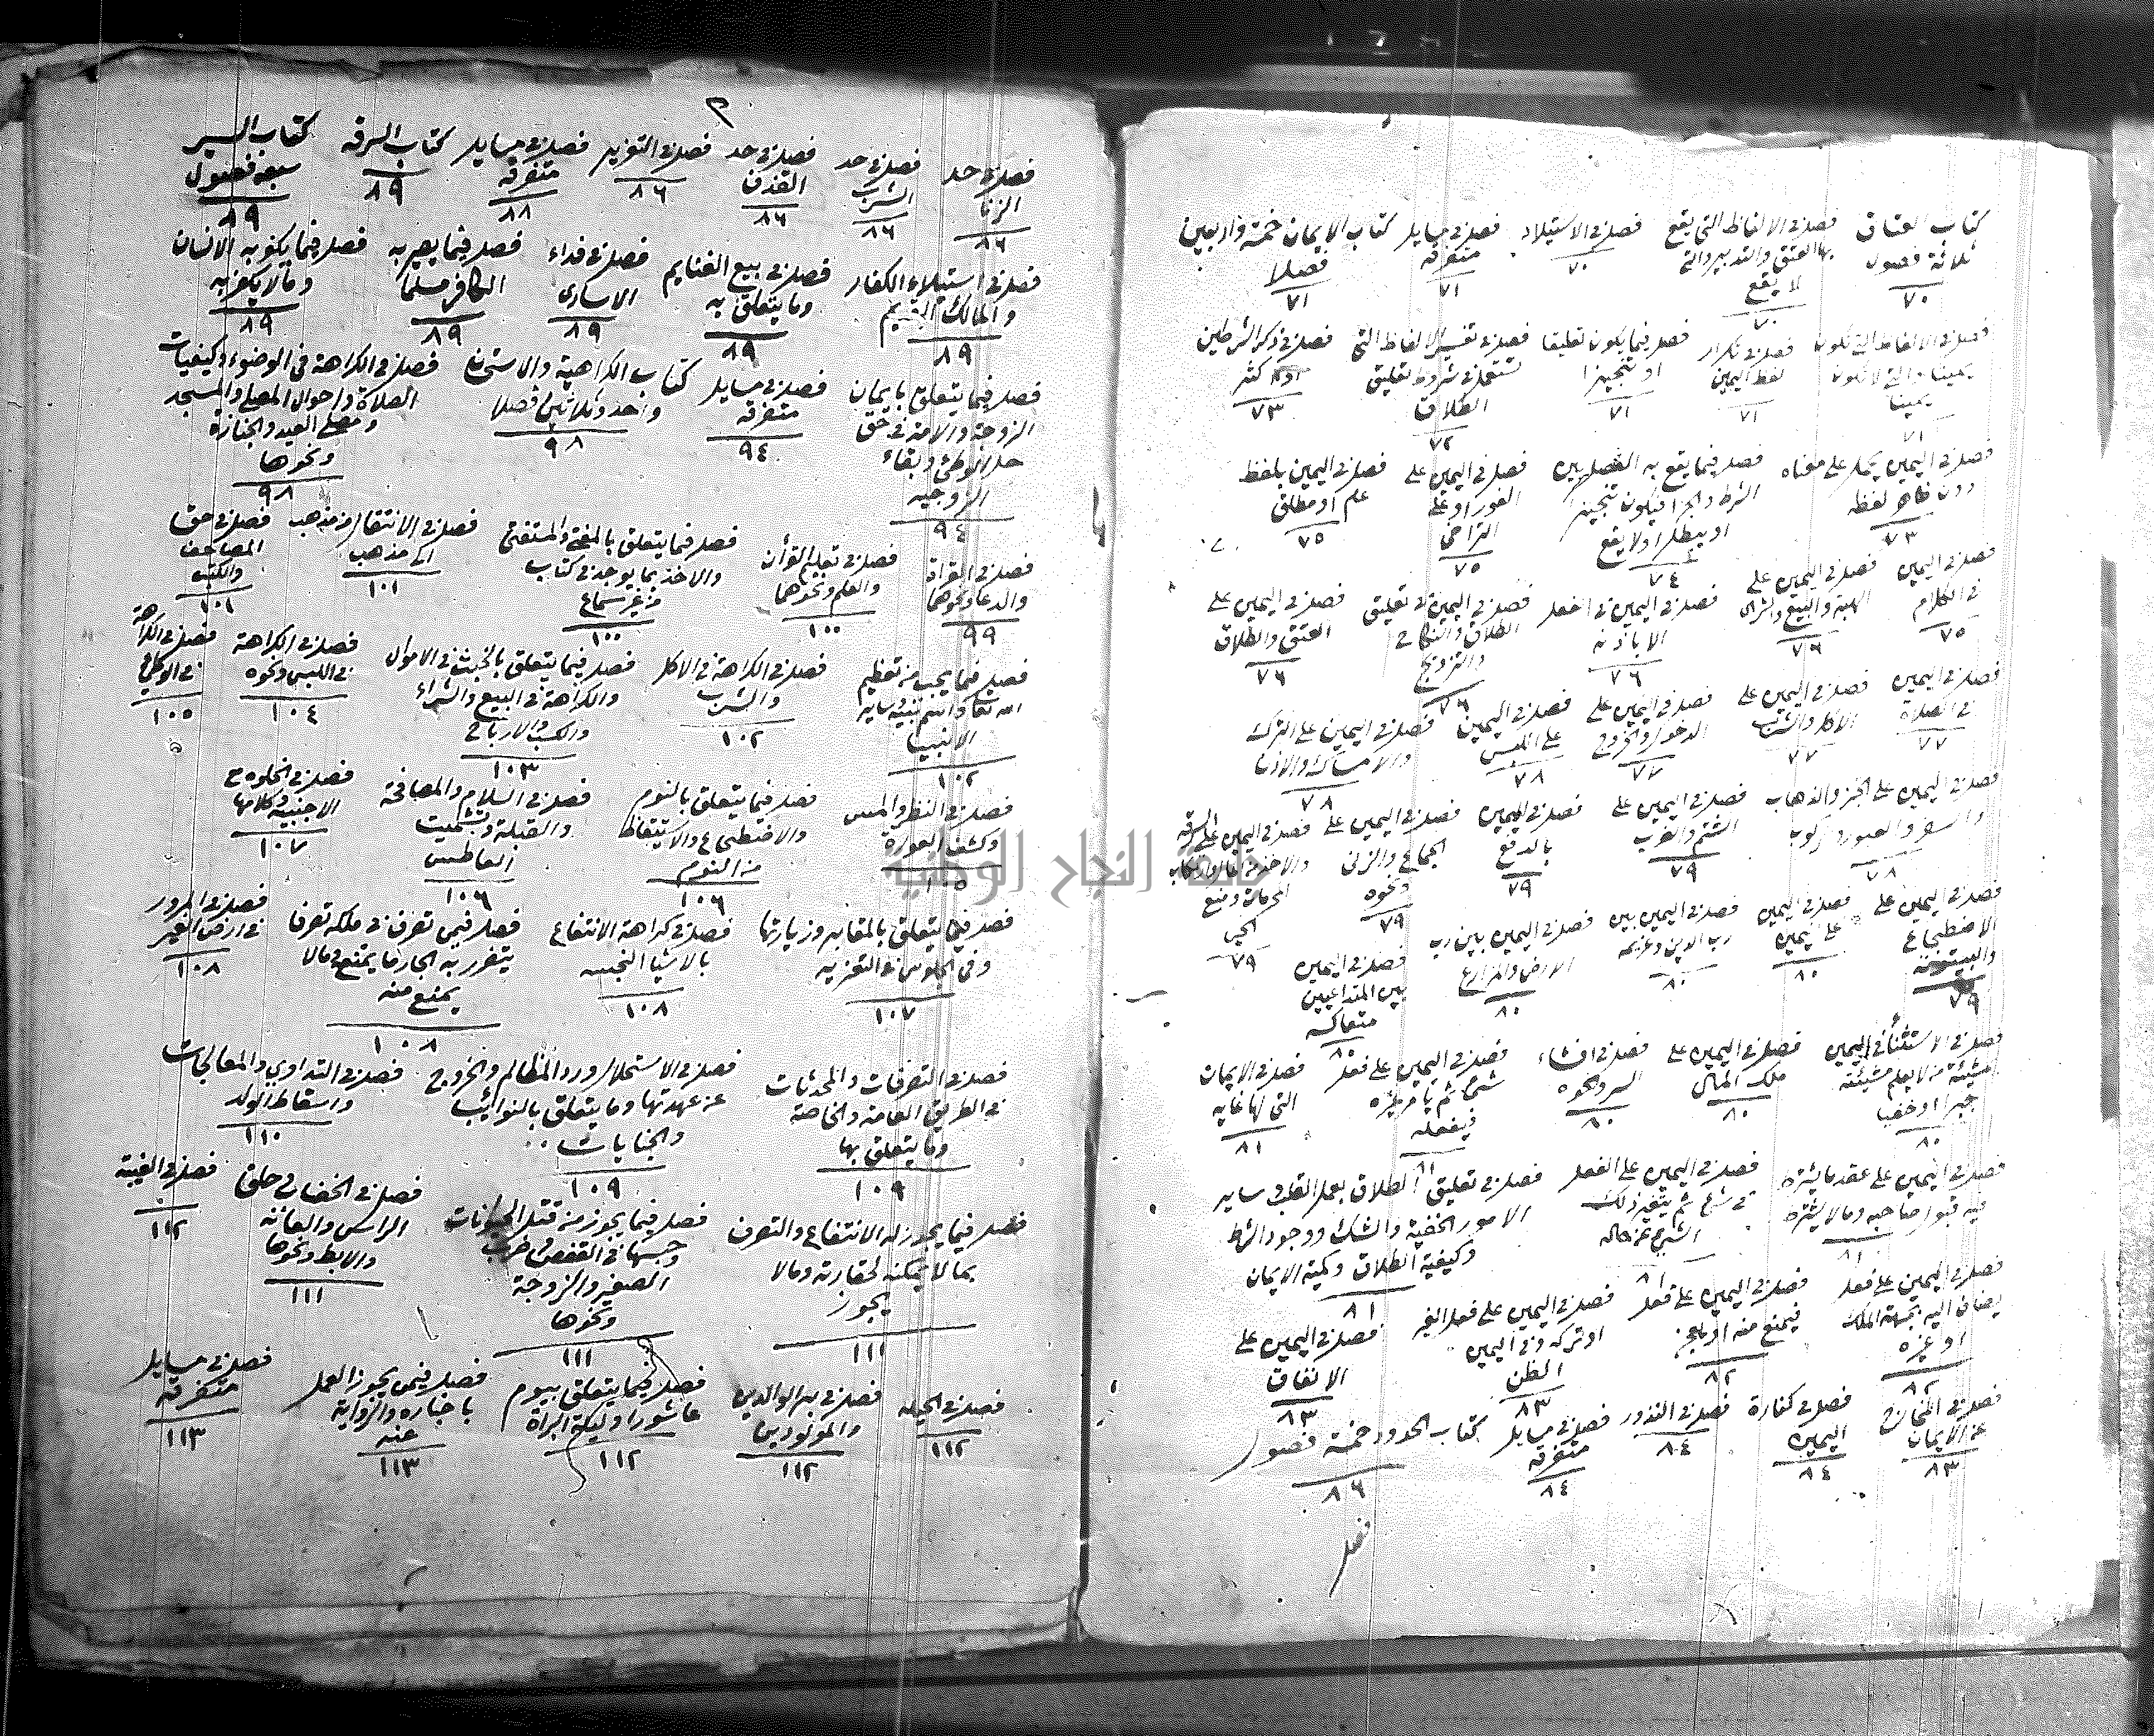 كتاب العتاق ثلاثة فصول ٧٠
فصل في الالفاظ التي يقع بها العتق والتدبير والتي لا يقع ٧٠
فصل في الاستيلاد ٧٠
فصل في مسايل متفرقة ٧١
كتاب الايمان خمسة واربعين فصلا ٧١
فصل في الالفاظ التي تكون يمينا والتي لا تكون يمينا ٧١
فصل في تكرار لفظ اليمين ٧١
فصل فيما يكون تعليقا او تنجيزا ٧١
فصل في تفسير الالفاظ التي تستعمل في شروط تعليق الطلاق ٧٢
فصل في ذكر الشرطين او اكثر ٧٣
فصل في اليمين يحمل على معناه دون ظاهر لفظه ٧٣
فصل فيما يقع به الفصل بين الشرط والجزا فيكون تنجيز او يبطل اولا يقع ٧٤
فصل في اليمين على الفور او على التراخي ٧٥
فصل في اليمين بلفظ عام او مطلق ٧٥
فصل في اليمين في الكلام ٧٥
فصل في اليمين على الهبة والبيع والشرى ٧٦
فصل في اليمين في افعل الا باذنه ٧٦
فصل في اليمين في تعليق الطلاق والنكاح والتزويج ٧٦
فصل في اليمين على العتق والطلاق ٧٦
فصل في اليمين في الصلاة ٧٧
فصل في اليمين على الاكل والشرب ٧٧
فصل في اليمين على الدخول والخروج ٧٧
فصل في اليمين على اللبس ٧٨
فصل في اليمين على الترك والامساك والاذن ٧٨
فصل في اليمين على الخبز والذهاب والسفر والعبور وركوب ٧٨
فصل في اليمين على الشتم والضرب ٧٩
فصل في اليمين بالدفع ٧٩
فصل في اليمين على الجماع والزنى ونحوه ٧٩
فصل في اليمين على السرقه والاخذ من المال وارتكاب المحرمات ٧٩
فصل في اليمين على الاضطجاع والبيتوته ٧٩
فصل في اليمين على اليمين ٨٠
فصل في اليمين بين رب الدين وغريمه ٨٠
فصل في اليمين بين رب الارض والمزارع ٨٠
فصل في اليمين بين المتداعيين متعاكسه ٨٠
فصل في الاستثنأ في اليمين مشيئة من لا يعلم مشيئته جهرا او خفيا ٨٠
فصل في اليمين على ملك المال ٨٠
فصل في افشاء السر ونحوه ٨٠
فصل في اليمين على فعل شئ ثم يامر غيره فيفعله ٨١
فصل في الايمان التي لها غايه ٨١
فصل في اليمين على عقد ما يشترط فيه قبول صاحبه وما لا يشترط ٨١
فصل في اليمين على الفعل في شئ ثم يتغير ذلك الشئ عن حاله ٨١
فصل في تعليق الطلاق بعمل القلب وساير الامور الخفية والشك ووجود الشرط وكيفية الطلاق وكمية الايمان ٨١
فصل في اليمين على فعل يضاف اليه بجهة الملك او غيره ٨٢
فصل في اليمين على فعل فيمنع منه او يعجز ٨٢
فصل في اليمين على فعل الغير او تركه وفي اليمين الظن ٨٣
فصل في اليمين على الانفاق ٨٣
فصل في المخارج عن الايمان ٨٣
فصل في كفارة اليمين ٨٤
فصل في النذور ٨٤
فصل في مسايل متفرقه ٨٤
كتاب الحدود خمسة فصول ٨٦
فصل
٣
فصل في حد الزنا ٨٦
فصل في حد الشرب ٨٦
فصل في حد القذف ٨٦
فصل في التعزير ٨٦
فصل في مسايل متفرقه ٨٨
كتاب السرقه ٨٩
كتاب السير سبعه فصول ٨٩
فصل في استيلاء الكفار والمالك القديم ٨٩
فصل في بيع الغنايم وما يتعلق به ٨٩
فصل في فداء الاسارى ٨٩
فصل فيما يصير به الكافر مسلما ٨٩
فصل فيما يكفر به الانسان وما لا يكفر به ٨٩
فصل فيما يتعلق بايمان الزوجة والامة في حق حل الوطئ وبقاء الزوجيه ٩٤
فصل في مسايل متفرقه ٩٤
كتاب الكراهية والاستحسان واحد وثلاثين فصلا ٩٨
فصل في الكراهة في الوضوء وكيفيات الصلاة واحوال المصلي والمسجد ومصلى العيد والجنازة ونحوها ٩٨
فصل في القراة والدعا ونحوهما ٩٩
فصل في تعليم القرأن والعلم ونحوهما ١٠٠
فصل فيما يتعلق بالمفتي والمستفتي والاخذ بما يوجد في كتاب من غير سماع ١٠٠
فصل في الانتقال من مذهب الى مذهب ١٠١
فصل في حق المصاحف والكتب ١٠١
فصل فيما يجب من تعظيم الله تعالى واسم نبيه وساير الانبيا ١٠٢
فصل في الكراهة في الاكل والشرب ١٠٢
فصل فيما يتعلق بالخبث في الاموال والكراهة في البيع والشراء والكسب والارباح ١٠٣
فصل في الكراهة في اللبس ونحوه ١٠٤
فصل في الكراهة في الوطئ ١٠٥
فصل في النظر والمس وكشف العورة ١٠٥
فصل فيما يتعلق بالنوم والاضطجاع والاستيقاظ من النوم ١٠٦
فصل في السلام والمصافحة والقبلة وتشميت العاطس ١٠٦
فصل في الخلوه ح الاجنبيه وكلامها ١٠٧
فصل فيما يتعلق بالمقابر وزيارتها وفي الجلوس في التعزيه ١٠٧
فصل في كراهة الانتفاع بالاشيا النجسه ١٠٨
فصل فيمن تصرف في ملكه تصرفا يتضرر به الجار ما يمنع وما لا يمنع منه ١٠٨
فصل في المرور في ارض الغير ١٠٨
فصل في التصرفات والمحدثات في الطريق العامة والخاصة وما يتعلق بها ١٠٩
فصل في الاستحلال ورد المظالم والخروج عن عهدتها وما يتعلق بالنوائب والجنايات ١٠٩
فصل في التداوي والمعالجات واسقاط الولد ١١٠
فصل فيما يجوز له الانتفاع والتصرف بما لا يملكه لحقارته وما لا يجوز ١١١
فصل فيما يجوز من قتل الحيوانات وحبسها في القفص وضرب الصغير والزوجة ونحوها ١١١
فصل في الخضاب وحلق الراس والعانه والابط ونحوها ١١١
فصل في الغيبة ١١٢
فصل في الحيله ١١٢
فصل في بر الوالدين والمولودين ١١٢
فصل فيما يتعلق بيوم عاشورا وليلة البراة ١١٢
فصل فيمن يجوز العمل باخباره والرواية عنه ١١٣
فصل في مسايل متفرقه ١١٣
النجاح الوطنية